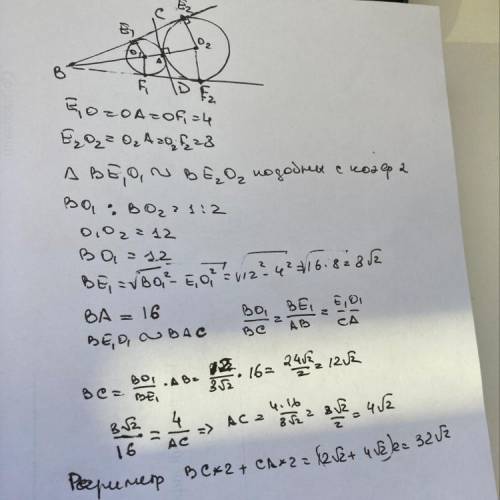 C E₂
E₁
O₂
O₁
B A
F₁ D F₂
E₁O = OA = OF₁ = 4
E₂O₂ = O₂A = O₂F₂ = 8
△ BE₁O₁ ∾ BE₂O₂ подобны с коэф 2
BO₁ : BO₂ = 1 : 2
O₁O₂ = 12
BO₁ = 12
BE₁ = √(BO₁² - E₁O₁²) = √(12² - 4²) = √(16·8) = 8√2
BA = 16
BE₁O₁ ∾ BAC BO₁/BC = BE₁/AB = E₁O₁/CA
BC = BO₁/BE₁ · AB = 12/8√2 · 16 = 24√2/2 = 12√2
8√2/16 = 4/AC => AC = 4·16/8√2 = 8√2/2 = 4√2
Периметр BC*2 + CA*2 = (12√2 + 4√2)2 = 32√2